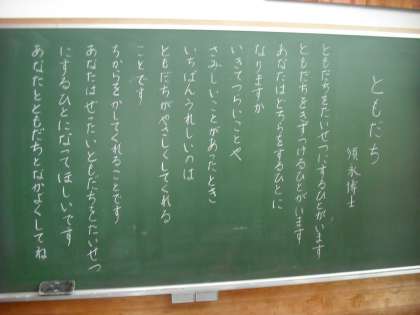 ともだち
須永博士
ともだちをたいせつにするひとがいます
ともだちをきずつけるひとがいます
あなたはどちらをするひとに
なりますか
いきてつらいことや、
さみしいことがあったとき
いちばんうれしいのは
ともだちがやさしくしてくれる
ことです
ちからをかしてくれることです
あなたはぜったいともだちをたいせつ
にするひとになってほしいです
あなたとともだちとなかよくしてね